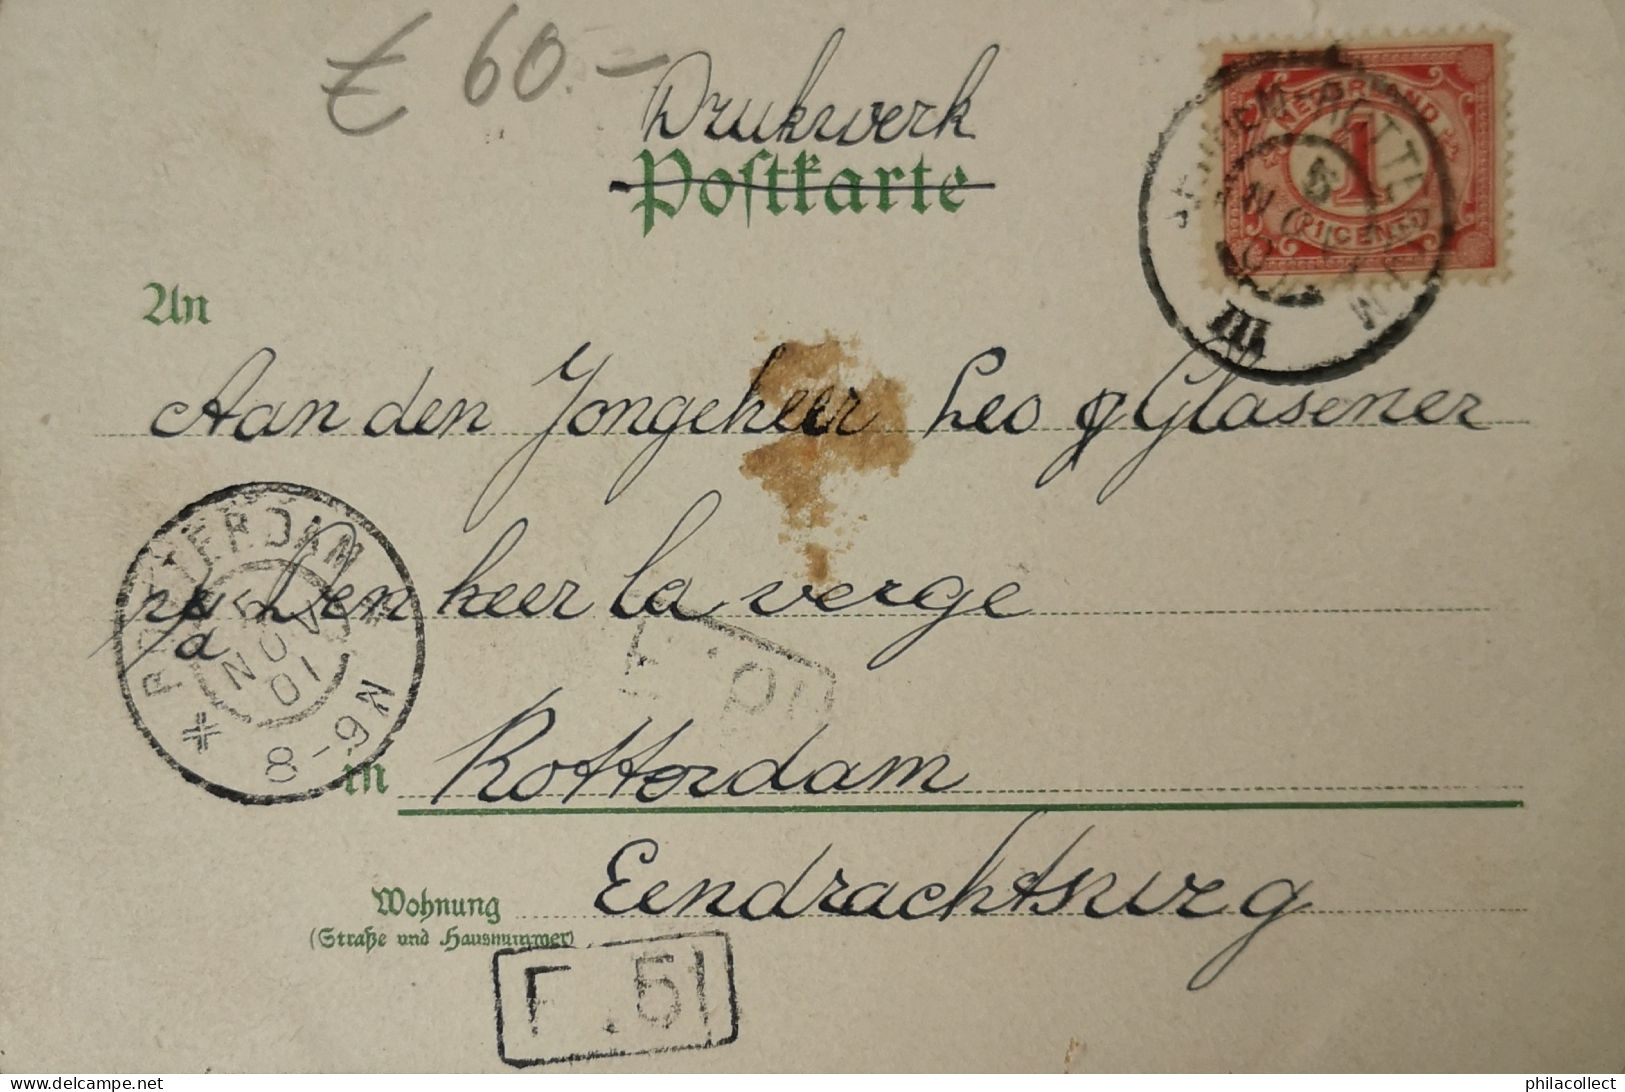 € 60.-
Drukwerk
Postkarte
NEDERLAND
1
CENT
III
An
Aan den Jongeheer Leo Glasener
ROTTERDAM
5 NOV 01
8-9N
Den heer la verge
in Rotterdam
Eendrachtsweg
Wohnung
(Straße und Hausnummer)
philacollect
www.delcampe.net